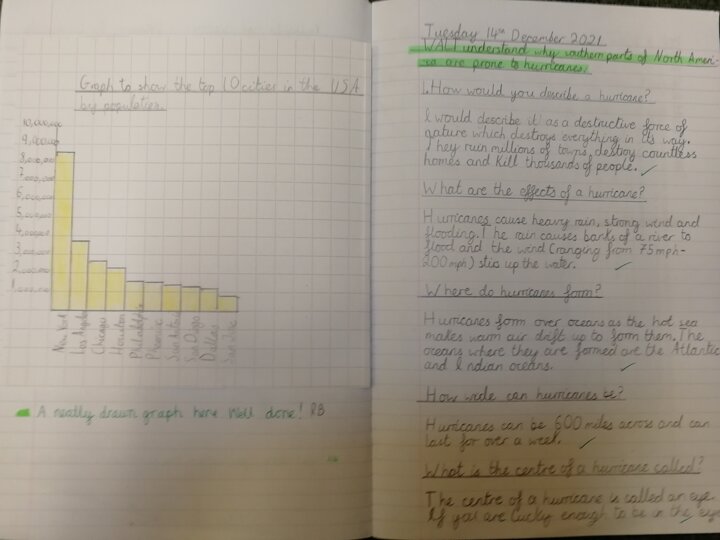 Graph to show the top 10 cities in the USA
by population.
10,000,000
9,000,000
8,000,000
7,000,000
6,000,000
5,000,000
4,000,000
3,000,000
2,000,000
1,000,000
New York
Los Angeles
Chicago
Houston
Philadelphia
Phoenix
San Antonio
San Diego
Dallas
San Jose
A neatly drawn graph here Well done! RB
Tuesday 14th December 2021
WALT understand why southern parts of North Ameri-
ca are prone to hurricanes.
1. How would you describe a hurricane?
I would describe it as a destructive force of
nature which destroys everything in its way.
They ruin millions of towns, destroy countless
homes and kill thousands of people.
What are the effects of a hurricane?
Hurricanes cause heavy rain, strong wind and
flooding. The rain causes banks of a river to
flood and the wind (ranging from 75mph-
200mph) stirs up the water.
Where do hurricanes form?
Hurricanes form over oceans as the hot sea
makes warm air drift up to form them. The
oceans where they are formed are the Atlantic
and Indian oceans.
How wide can hurricanes be?
Hurricanes can be 600 miles across and can
last for over a week.
What is the centre of a hurricane called?
The centre of a hurricane is called an eye.
If you are lucky enough to be in the eye